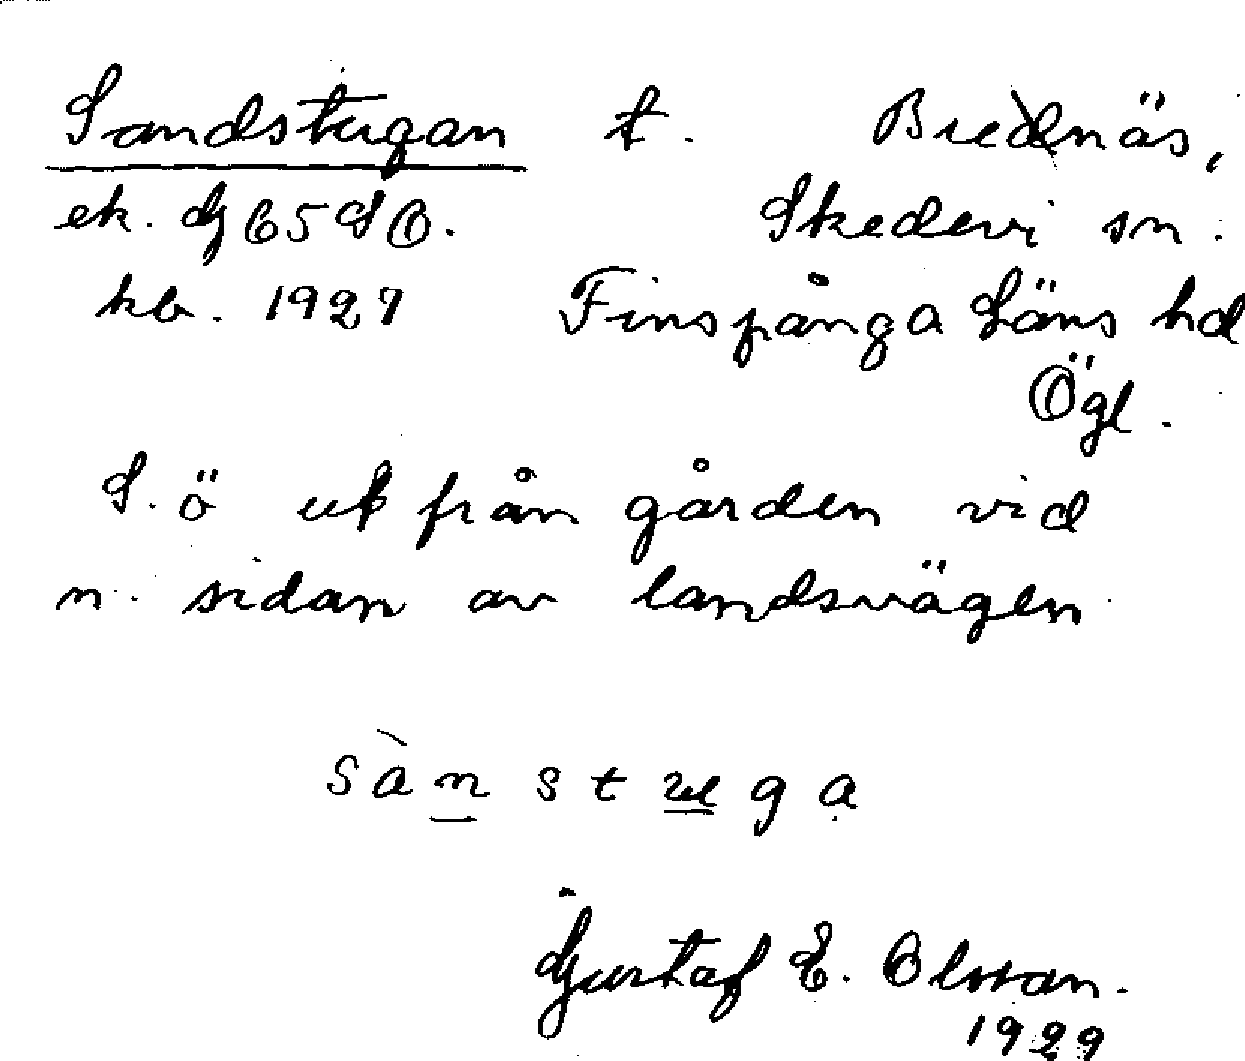 Sandstugan t. Brednäs,
ek. G 65 SO. Skedevi sn.
kb. 1927 Finspånga Läns hd
Ögl.
S. ö ut från gården vid
n. sidan av landsvägen
sàn stuga
Gustaf E. Olsson.
1929